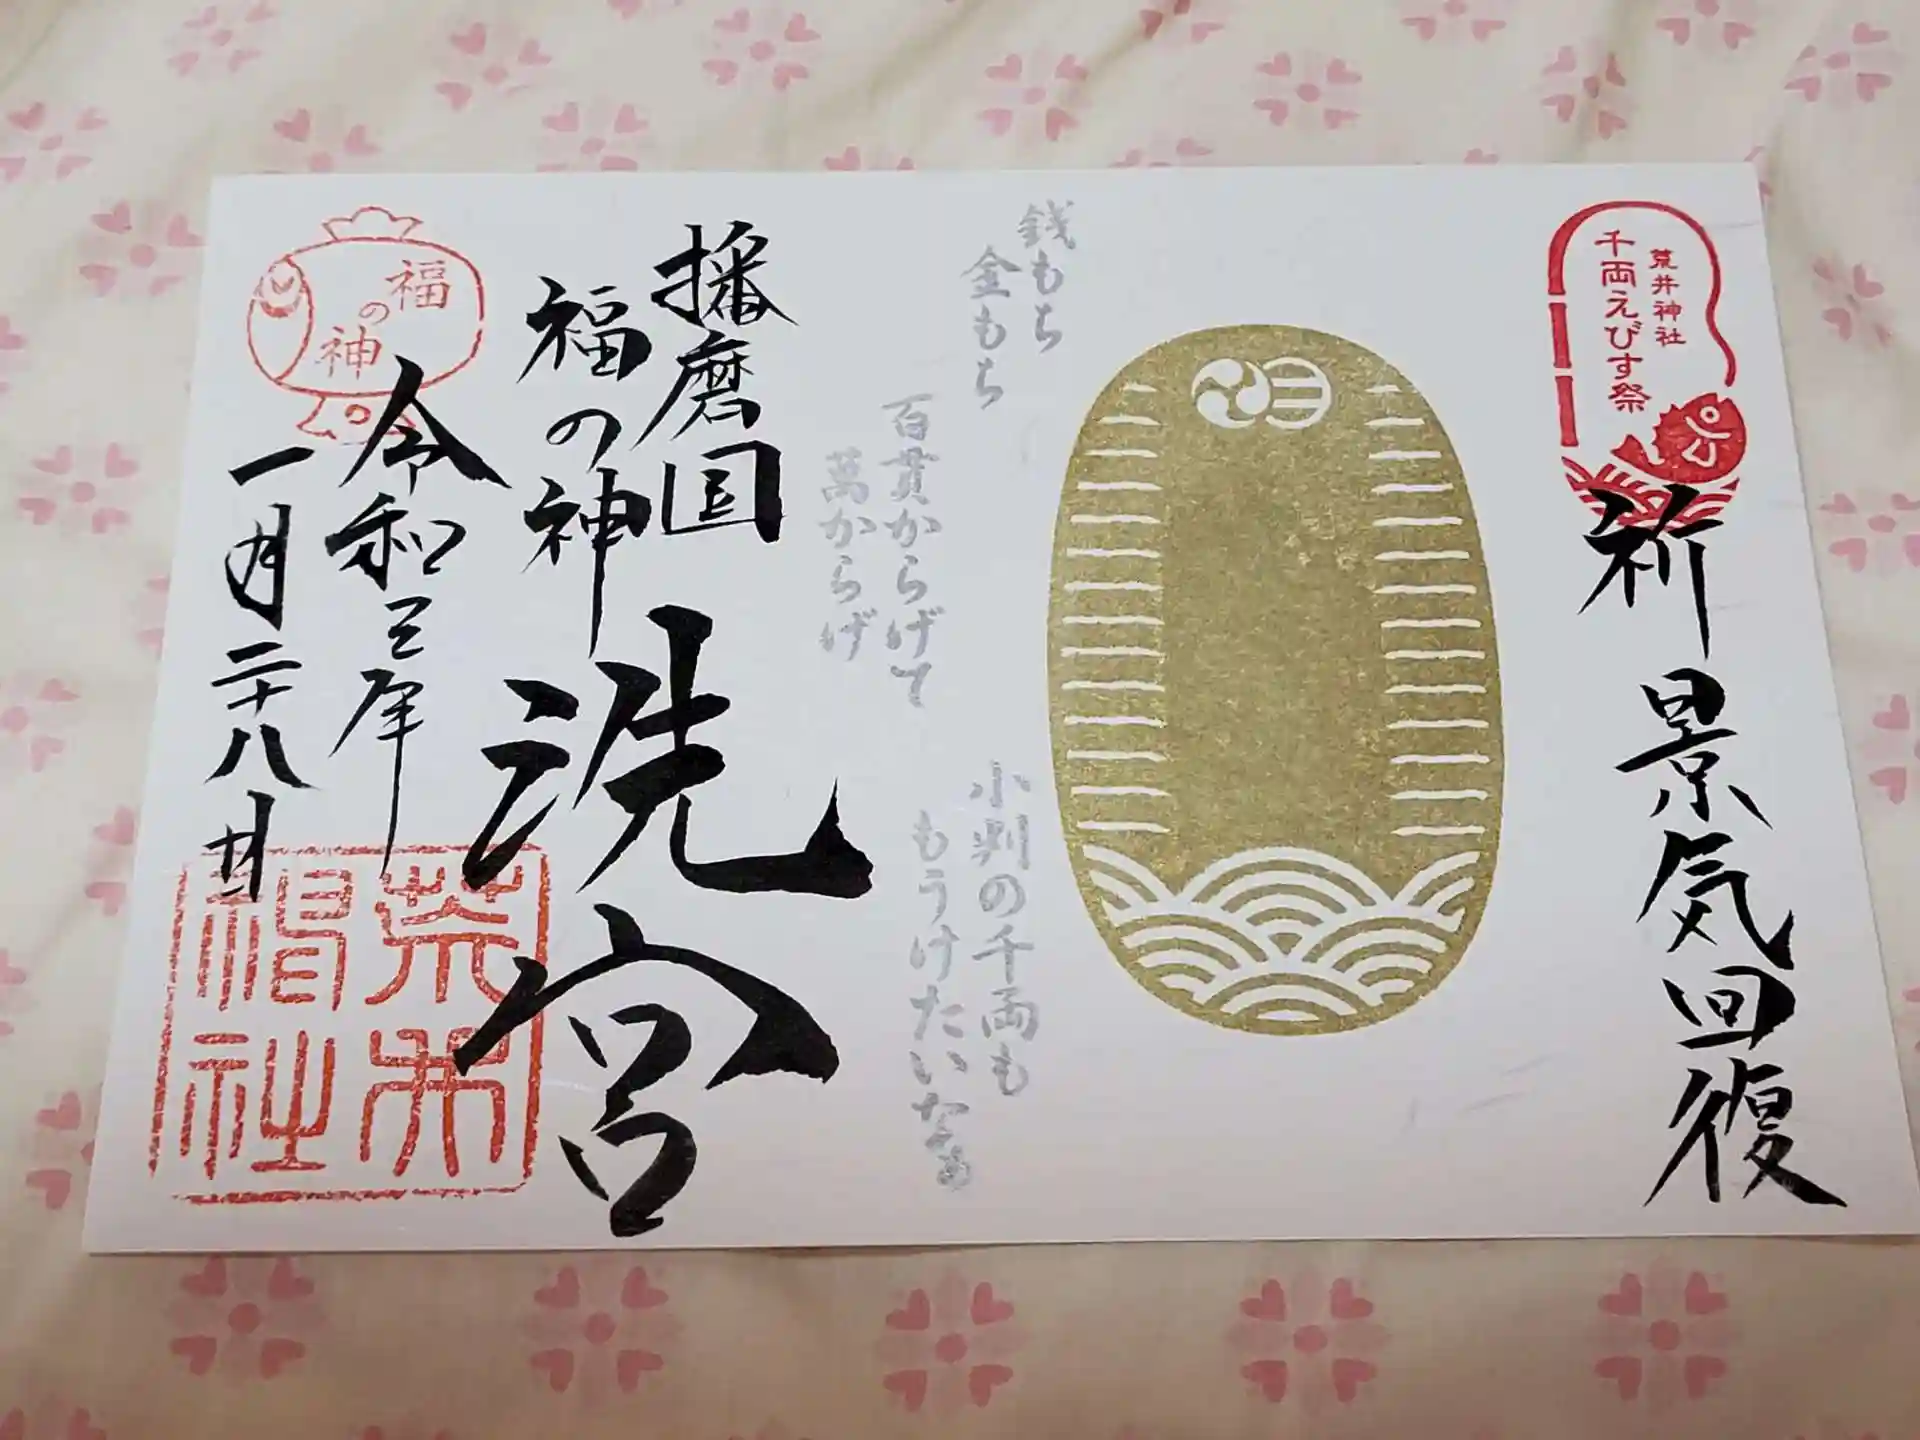 荒井神社
千両えびす祭
祈 景気回復
銭もち
金もち
百貫からげて
萬からげ
小判の千両も
もうけたいなあ
播磨国
福の神
洗宮
令和三年
一月二十八日
福の神
荒井神社